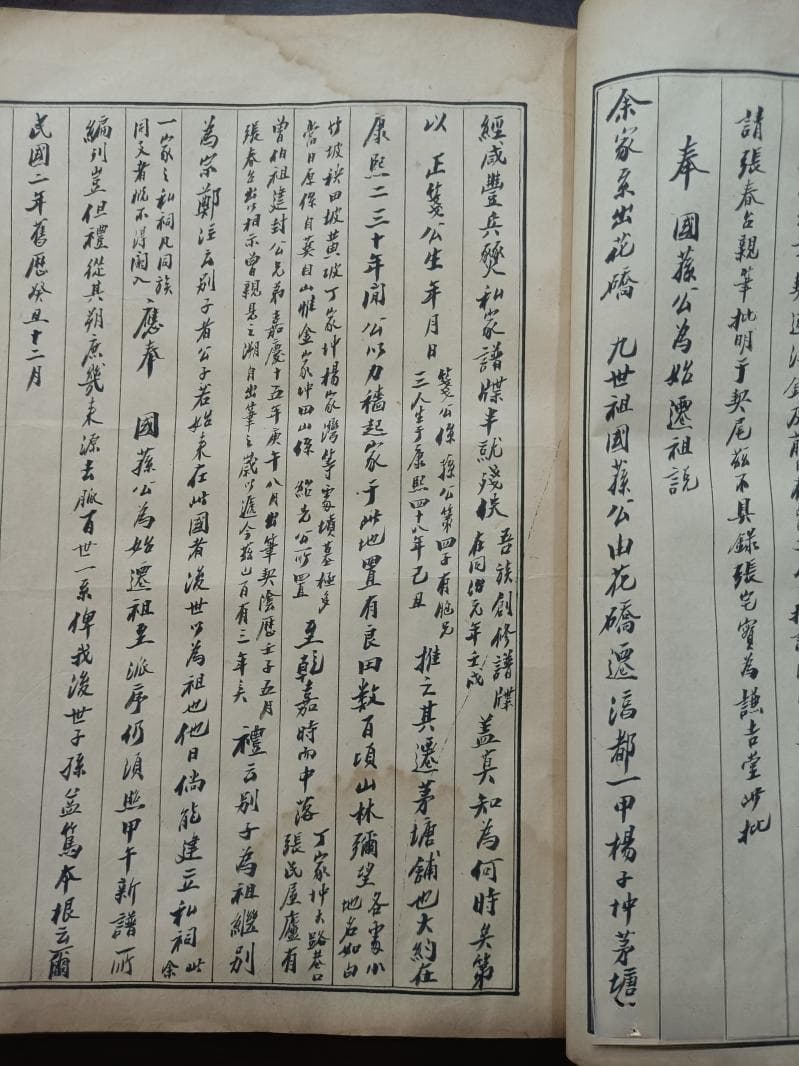 請張春台親筆批明于契尾茲不具錄張宅實為謙吉堂此批
奉國蓀公為始遷祖說
余家系出花礄 九世祖國蓀公由花礄遷滔都一甲楊子坤茅塘
經咸豐兵燹私家譜牒半就殘佚
吾族創修譜牒
在同治元年壬戌
蓋莫知為何時矣第
以 正箋公生年月日
箋公係蓀公第四子有胞兄
三人生于康熙四十八年己丑
推之其遷茅塘舖也大約在
康熙二三十年聞公以力穡起家于此地置有良田数百頃山林彌望
各處小
地名如白
竹坡秧田坡黄坡丁家坤楊家灣等處墳墓極多
當日原係自葬自山惟金家坤田山係 紹先公所置
至乾嘉時而中落
丁家坤大路巷口
張氏屋廬有
曾伯祖建封公兄弟嘉慶十五年庚午八月出筆契陰歷壬子五月
張春台出以相示曾親見之溯自出筆之歲以遞今茲已百有三年矣
禮云别子為祖繼别
為宗鄭注云别子者公子若始来在此國者後世以為祖也他日倘能建立私祠
此
余
一家之私祠凡同族
同支者概不得闌入
應奉 國蓀公為始遷祖至派序仍須照甲午新譜所
編列豈但禮從其朔庶幾来源去脉百世一系俾我後世子孫益篤本根云爾
民國二年舊歷癸丑十二月